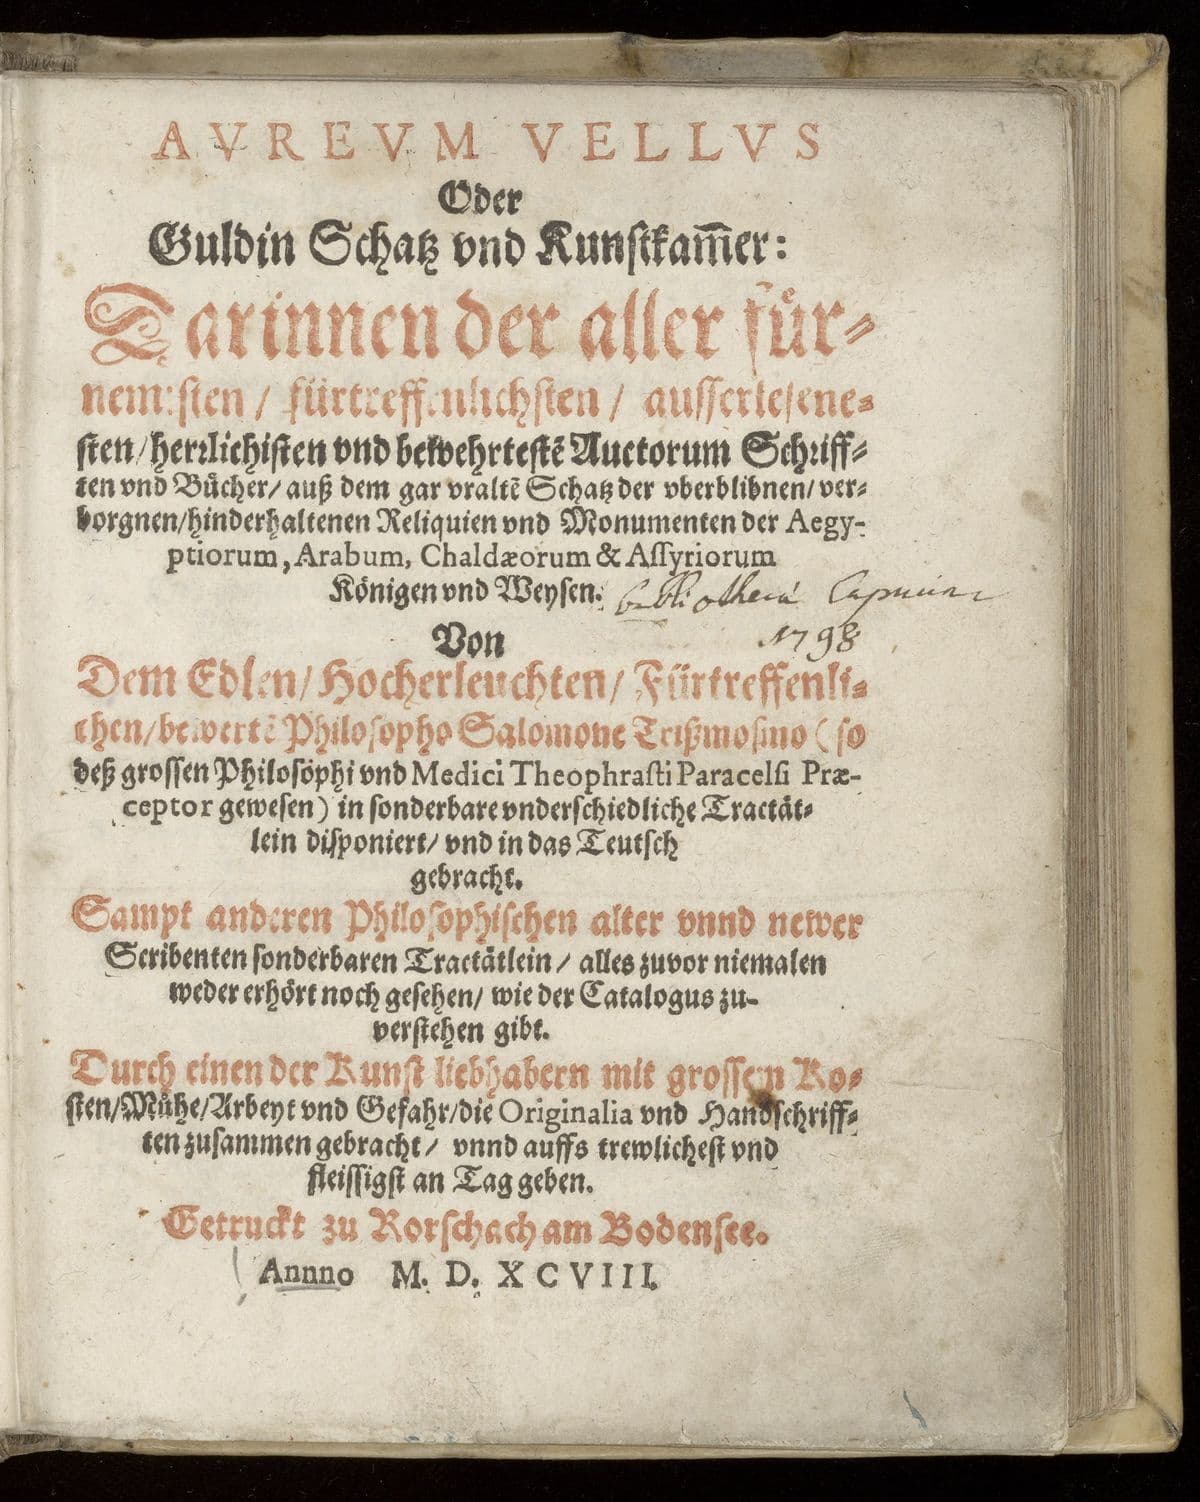 AVREVM VELLVS
Oder
Guldin Schatz vnd Kunstkam̅er:
Darinnen der aller für⸗
nem:sten / fürtreffenlichsten / ausserlesene⸗
sten/ herrlichisten vnd bewehrtestẽ Auctorum Schriff⸗
ten vnd Bücher/ auß dem gar vraltẽ Schatz der vberblibnen/ ver⸗
borgnen/ hinderhaltenen Reliquien vnd Monumenten der Aegy-
ptiorum, Arabum, Chaldæorum & Aſſyriorum
Königen vnd Weysen.
bibliothecá
1798
Von
Dem Edlen/ Hocherleuchten/ Fürtreffenli⸗
chen/ bewertẽ Philosopho Salomone Trißmosino (so
deß grossen Philosophi vnd Medici Theophraſti Paracelſi Præ-
ceptor gewesen) in sonderbare vnderschiedliche Tractät⸗
lein disponiert/ vnd in das Teutsch
gebracht.
Sampt anderen Philosophischen alter vnnd newer
Scribenten sonderbaren Tractätlein / alles zuvor niemalen
weder erhört noch gesehen/ wie der Catalogus zu-
verstehen gibt.
Durch einen der Kunst liebhabern mit grossem Ko⸗
sten/ Mühe/ Arbeyt vnd Gefahr/ die Originalia vnd Handschriff⸗
ten zusammen gebracht/ vnnd auffs trewlichest vnd
fleissigst an Tag geben.
Getruckt zu Rorschach am Bodensee.
Annno M. D. XCVIII.